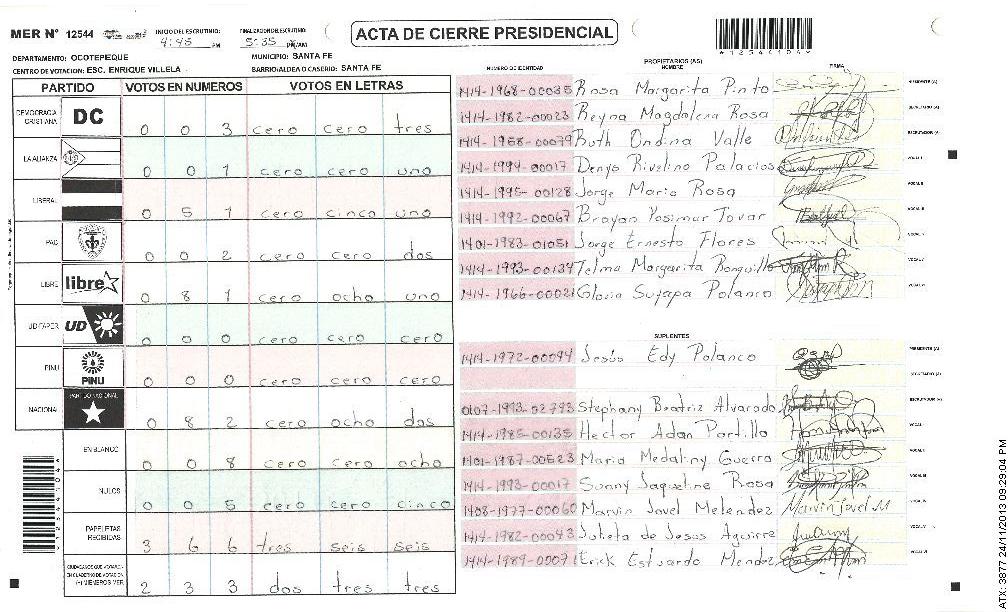 MER N° 12544
INICIO DEL ESCRUTINIO: 4:45 PM
FINALIZACION DEL ESCRUTINIO: 5:35 PM/AM
ACTA DE CIERRE PRESIDENCIAL
DEPARTAMENTO: OCOTEPEQUE
MUNICIPIO: SANTA FE
CENTRO DE VOTACION: ESC. ENRIQUE VILLELA
BARRIO/ALDEA O CASERIO: SANTA FE
PARTIDO VOTOS EN NUMEROS VOTOS EN LETRAS
DEMOCRACIA CRISTIANA DC 0 0 3 cero cero tres
LA ALIANZA 0 0 1 cero cero uno
LIBERAL 0 5 1 cero cinco uno
PAC 0 0 2 cero cero dos
LIBRE libre 0 8 1 cero ocho uno
UD-FAPER UD 0 0 0 cero cero cero
PINU PINU 0 0 0 cero cero cero
NACIONAL PARTIDO NACIONAL 0 8 2 cero ocho dos
EN BLANCO 0 0 8 cero cero ocho
NULOS 0 0 5 cero cero cinco
PAPELETAS RECIBIDAS 3 6 6 tres seis seis
CIUDADANOS QUE VOTARON EN CUADERNO DE VOTACION (+) MIEMBROS MER 2 3 3 dos tres tres
PROPIETARIOS (AS)
NUMERO DE IDENTIDAD NOMBRE FIRMA
1414-1968-00035 Rosa Margarita Pinto PRESIDENTE (A)
1414-1982-00023 Reyna Magdalena Rosa SECRETARIO (A)
1414-1958-00079 Ruth Ondina Valle ESCRUTADOR (A)
1414-1994-00017 Denys Rivelino Palacios VOCAL I
1414-1995-00128 Jorge Mario Rosa VOCAL II
1414-1992-00067 Brayan Yosimar Tovar
1401-1983-01051 Jorge Ernesto Flores
1414-1993-00134 Telma Margarita Bonquillo
1414-1966-00021 Gloria Suyapa Polanco
SUPLENTES
1414-1972-00094 Jesus Edy Polanco PRESIDENTE (A)
SECRETARIO (A)
0107-1973-02793 Stephany Beatriz Alvarado ESCRUTADOR (A)
1414-1985-00135 Hector Adan Portillo VOCAL I
1401-1987-00523 Maria Medaliny Guerra VOCAL II
1414-1993-00017 Sunny Jaqueline Rosa
1408-1977-00060 Marvin Jovel Melendez Marvin Jovel M
1414-1982-00043 Julieta de Jesus Aguirre
1414-1989-00071 Erick Estuardo Mendez
ATX: 3877 24/11/2013 09:29:04 PM